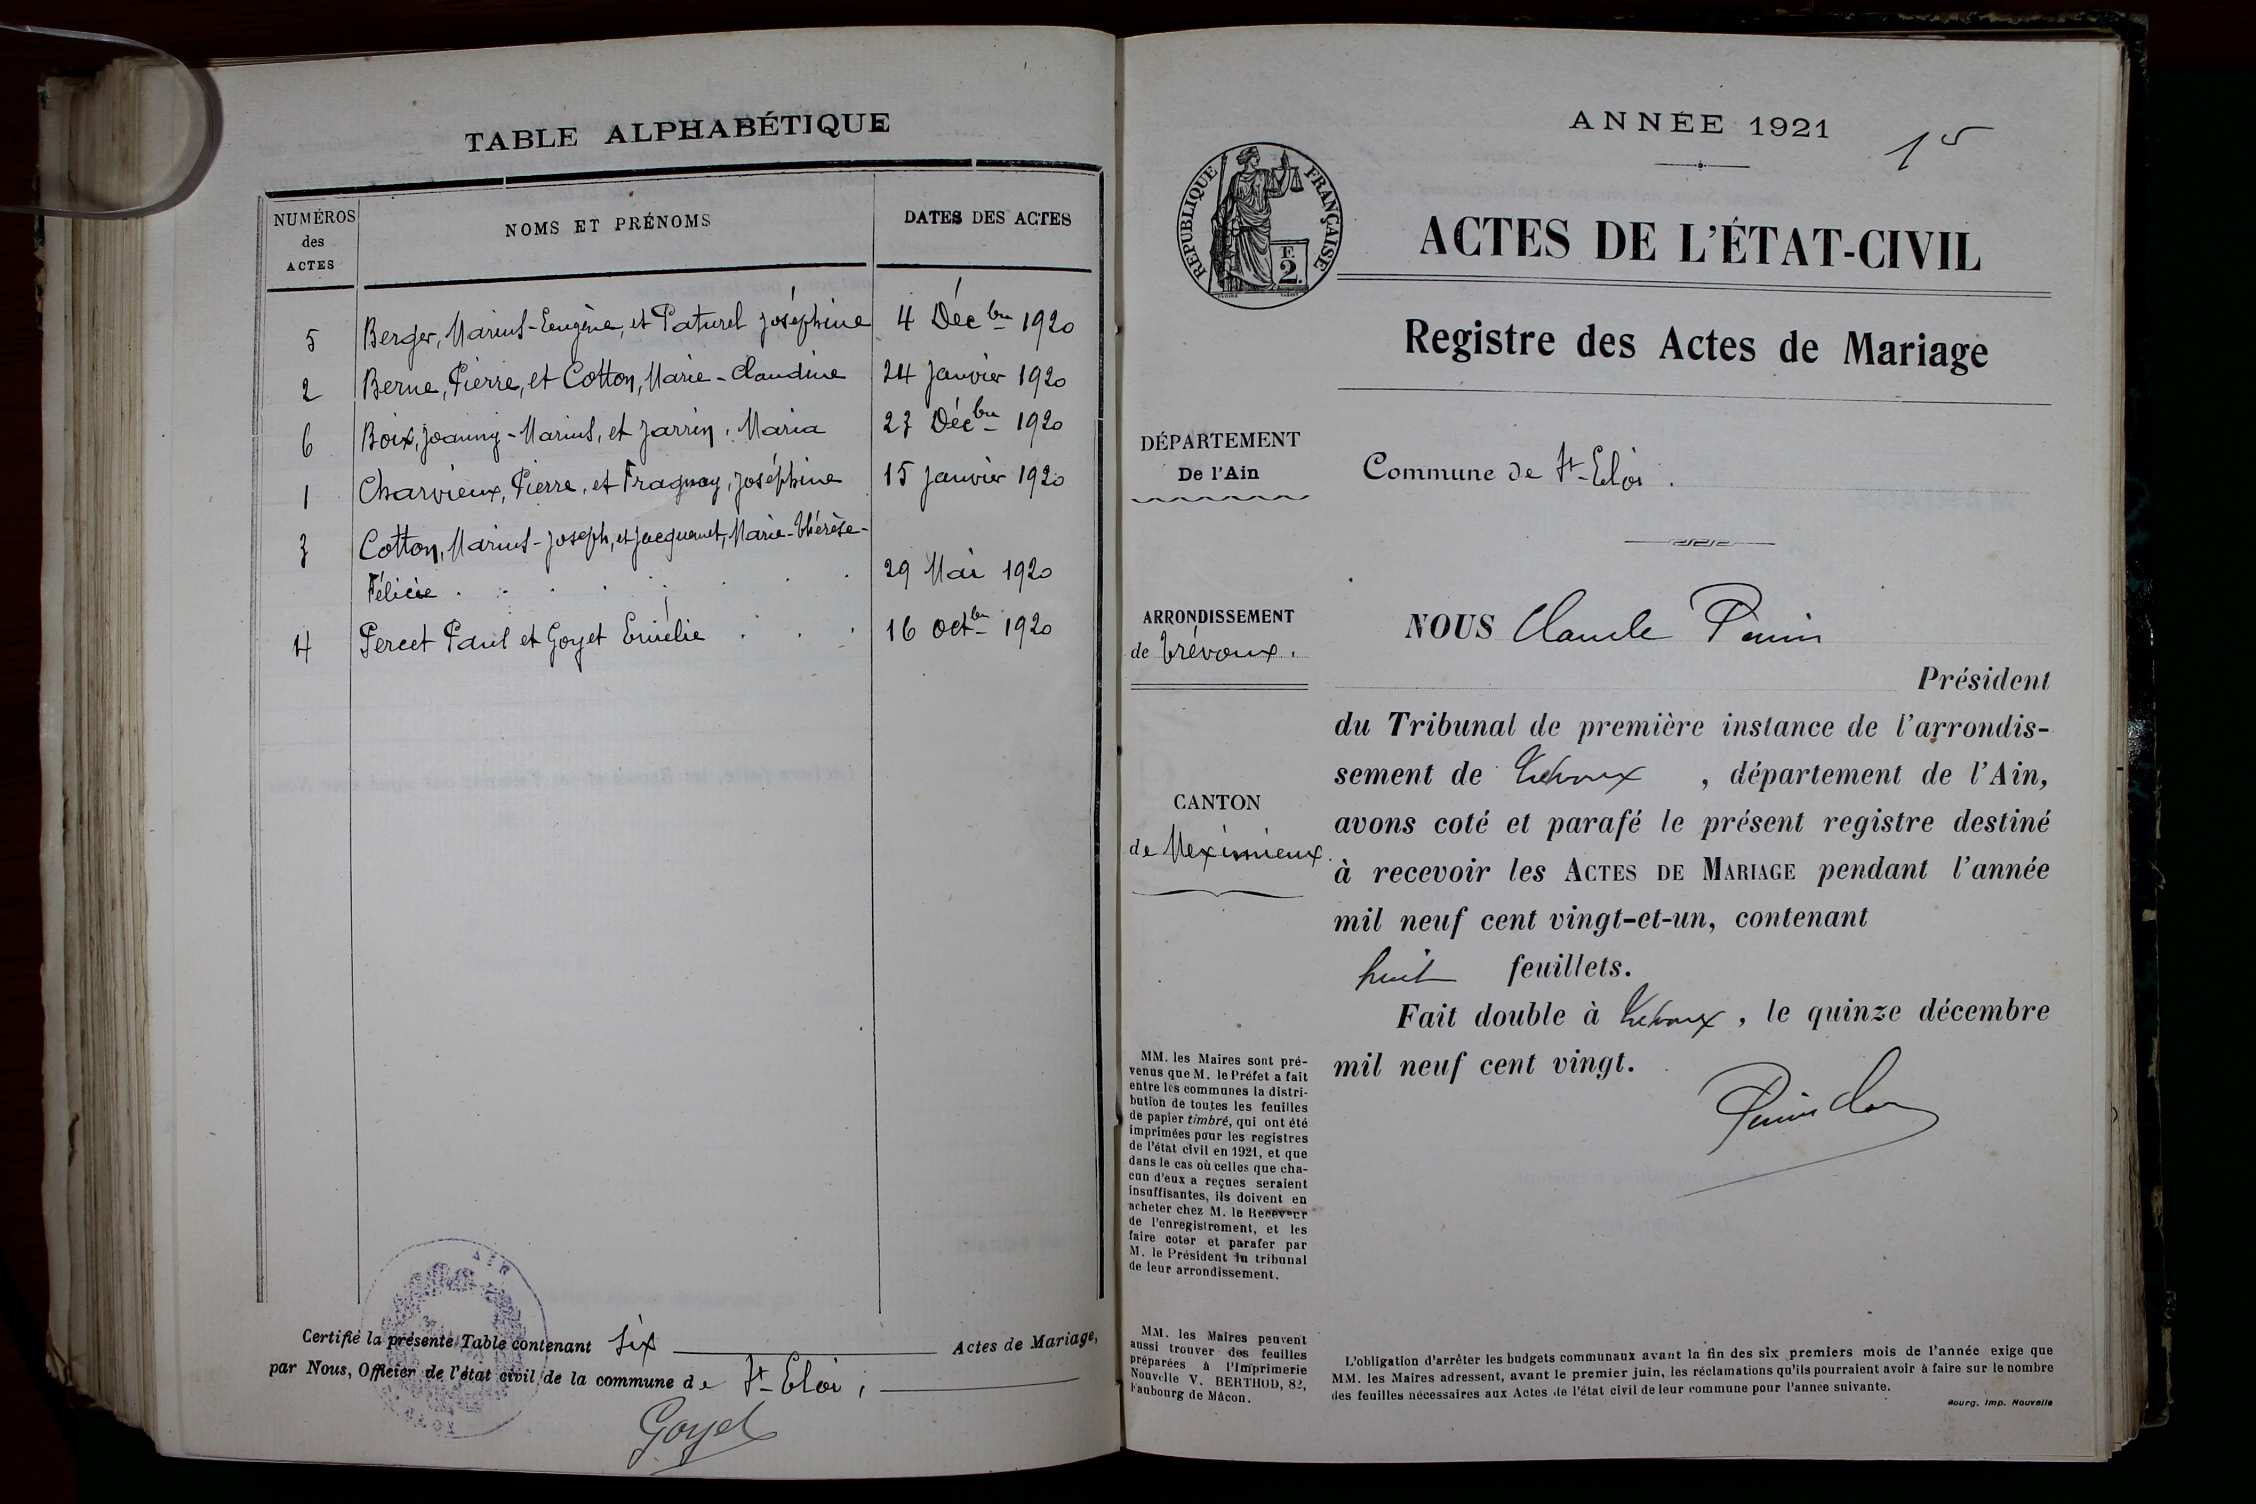 TABLE ALPHABÉTIQUE
NUMÉROS des ACTES
NOMS ET PRÉNOMS
DATES DES ACTES
5 Berger, Marius-Eugène, et Paturel Joséphine 4 Déc bre 1920
2 Berne, Pierre, et Cotton, Marie-Claudine 24 Janvier 1920
6 Boix, Joanny-Marius, et Jarrin, Maria 23 Déc bre 1920
1 Charvieux, Pierre, et Fragnay, Joséphine 15 Janvier 1920
3 Cotton, Marius-Joseph, et Jacquemet, Marie-Thérèse-
Félicie . . . . . . . 29 Mai 1920
4 Percet Paul et Goyet Emélie . . . 16 oct bre 1920
Certifié la présente Table contenant six Actes de Mariage,
par Nous, Officier de l'état civil de la commune de St-Eloi,
Goyet
AIN
ANNÉE 1921
1er
RÉPUBLIQUE FRANÇAISE
F.
2.
ACTES DE L'ÉTAT-CIVIL
Registre des Actes de Mariage
DÉPARTEMENT
De l'Ain
Commune de St-Eloi.
ARRONDISSEMENT
de Trévoux.
CANTON
de Meximieux.
NOUS Claude Perrin
Président
du Tribunal de première instance de l'arrondis-
sement de Trévoux, département de l'Ain,
avons coté et parafé le présent registre destiné
à recevoir les ACTES DE MARIAGE pendant l'année
mil neuf cent vingt-et-un, contenant
huit feuillets.
Fait double à Trévoux, le quinze décembre
mil neuf cent vingt.
MM. les Maires sont pré-
venus que M. le Préfet a fait
entre les communes la distri-
bution de toutes les feuilles
de papier timbré, qui ont été
imprimées pour les registres
de l'état civil en 1921, et que
dans le cas où celles que cha-
cun d'eux a reçues seraient
insuffisantes, ils doivent en
acheter chez M. le Receveur
de l'enregistrement, et les
faire coter et parafer par
M. le Président du tribunal
de leur arrondissement.
MM. les Maires peuvent
aussi trouver des feuilles
préparées à l'Imprimerie
Nouvelle V. BERTHOD, 82,
Faubourg de Mâcon.
L'obligation d'arrêter les budgets communaux avant la fin des six premiers mois de l'année exige que
MM. les Maires adressent, avant le premier juin, les réclamations qu'ils pourraient avoir à faire sur le nombre
des feuilles nécessaires aux Actes de l'état civil de leur commune pour l'année suivante.
Bourg, Imp. Nouvelle